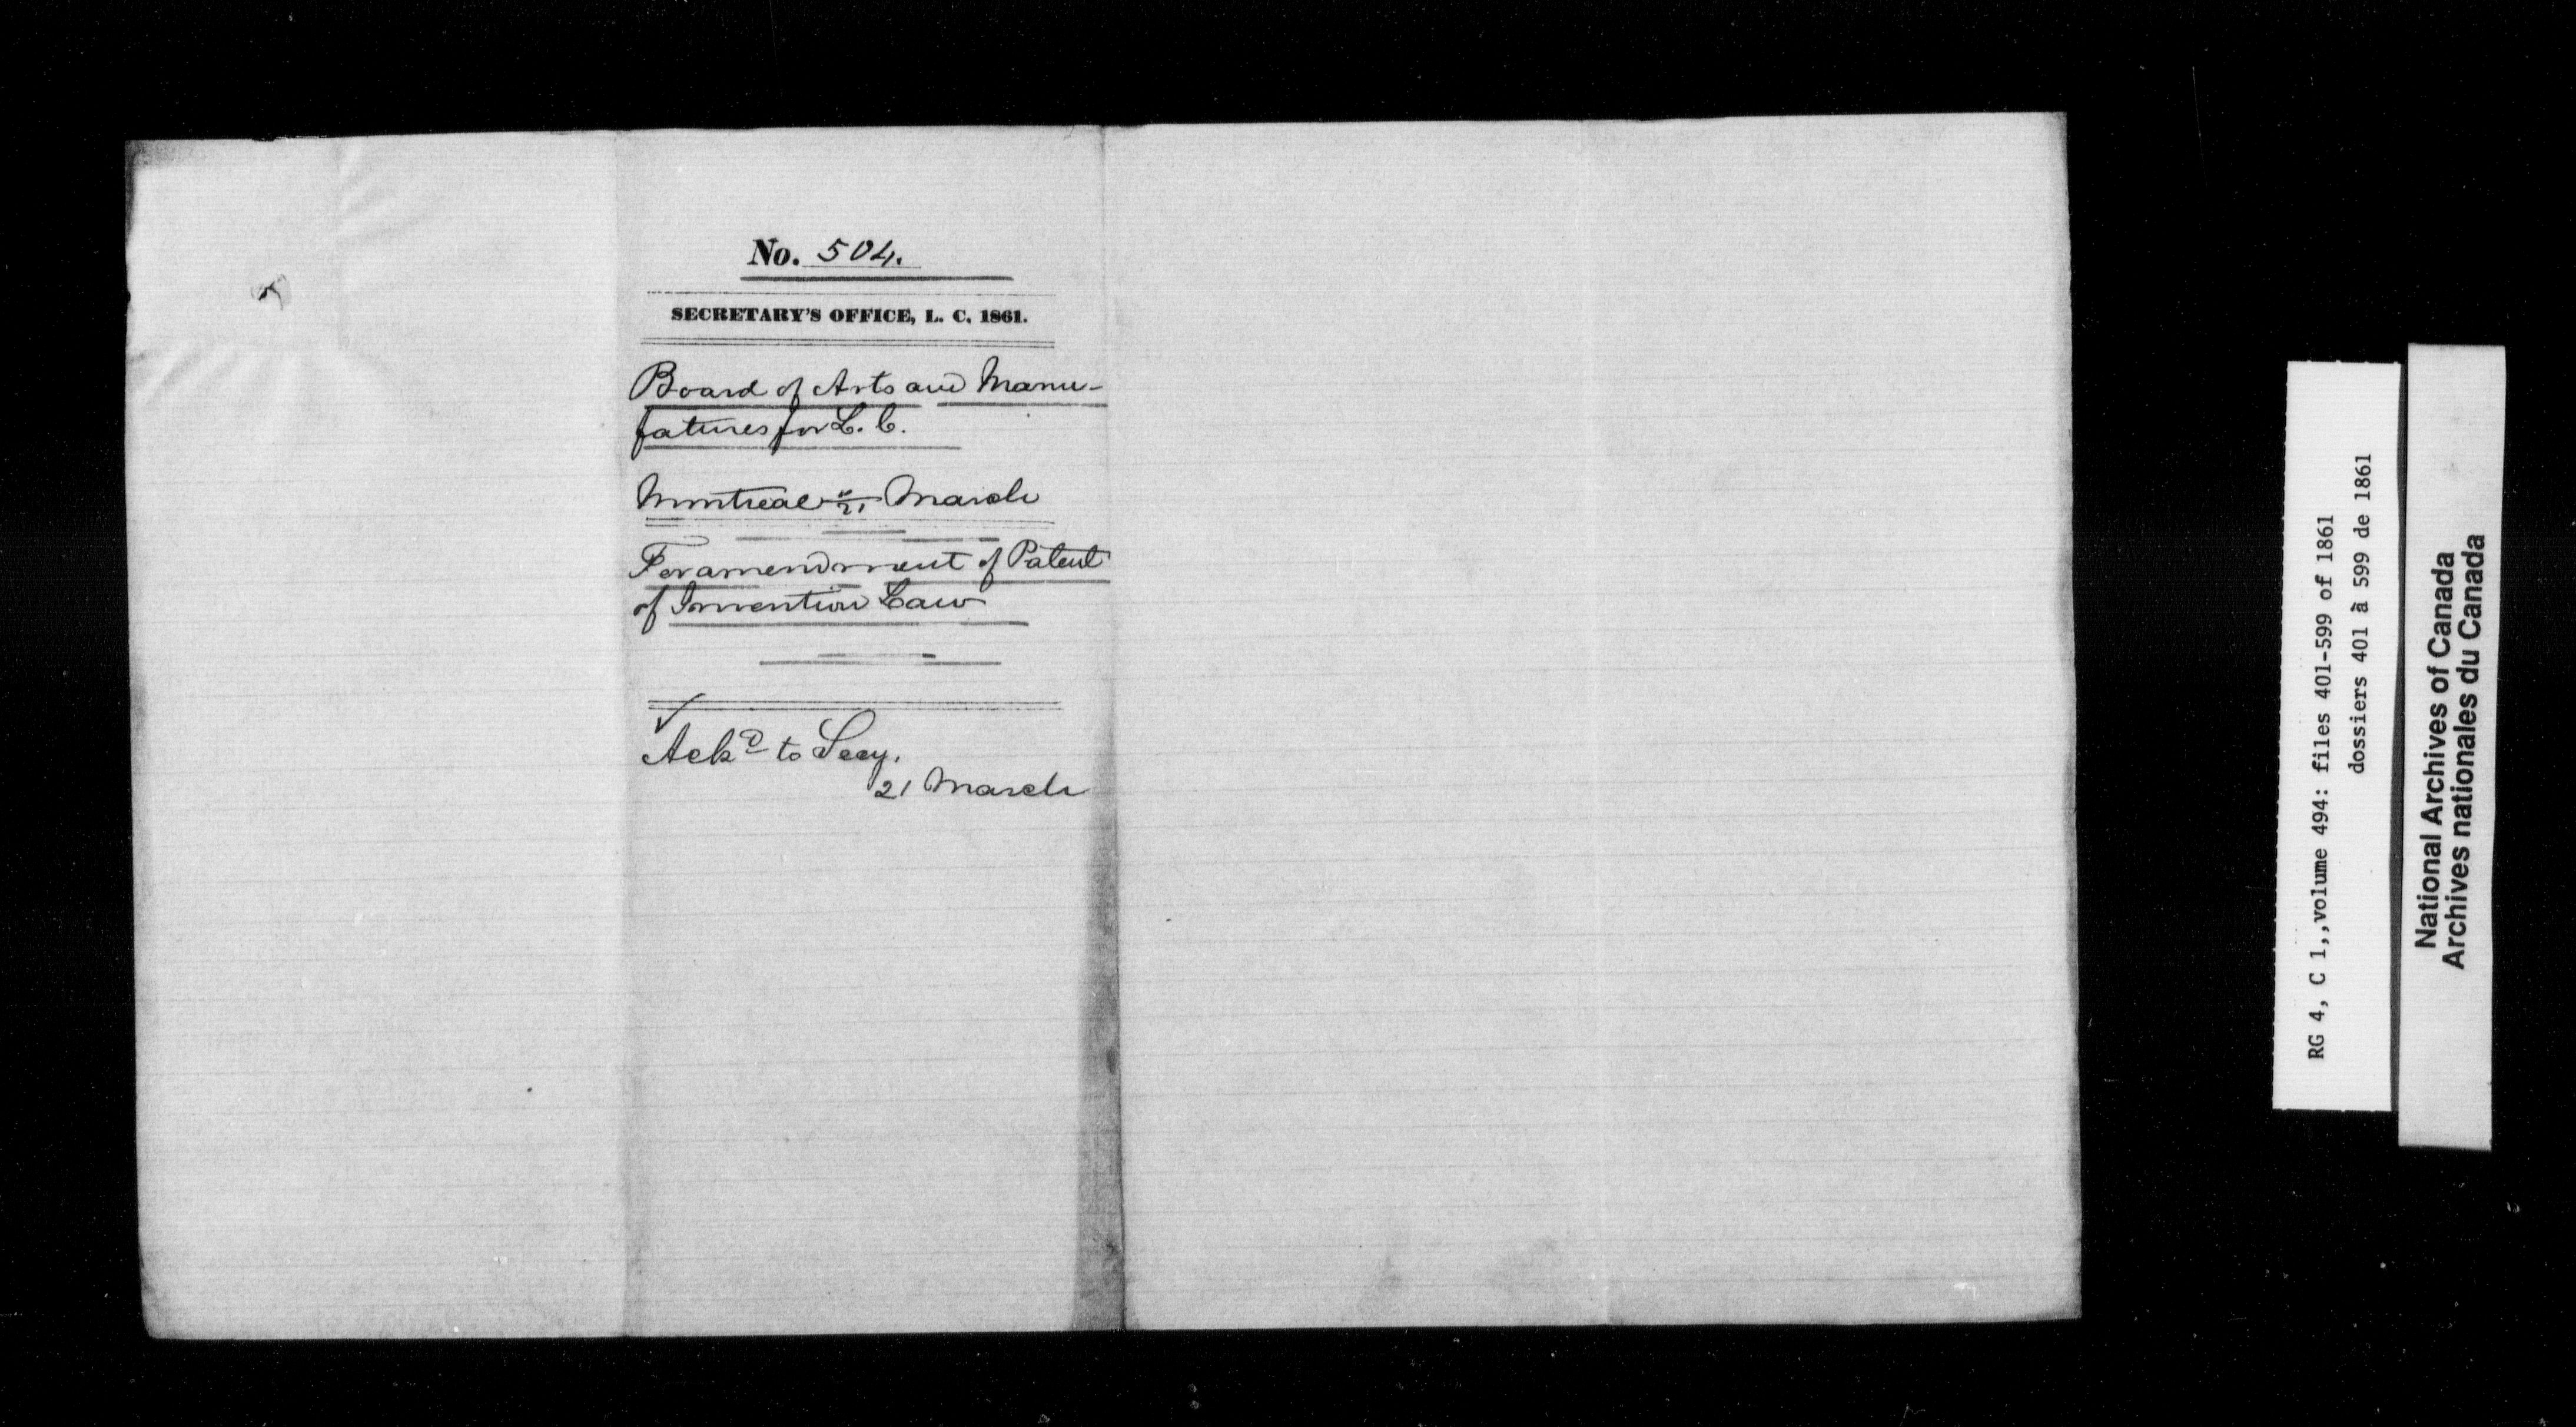 No. 504.
SECRETARY'S OFFICE, L. C. 1861.
Board of Arts and Manu-
fatures for L. C.
Montreal 21 March
For amendment of Patent
of Invention Law
Ackd to Secy.
21 March
RG 4, C 1,,volume 494: files 401-599 of 1861
dossiers 401 à 599 de 1861
National Archives of Canada
Archives nationales du Canada